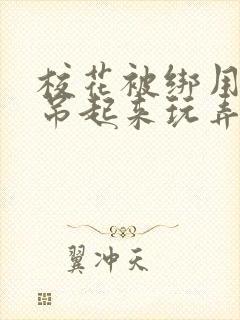 校花被绑用
吊起来玩弄
翼冲天